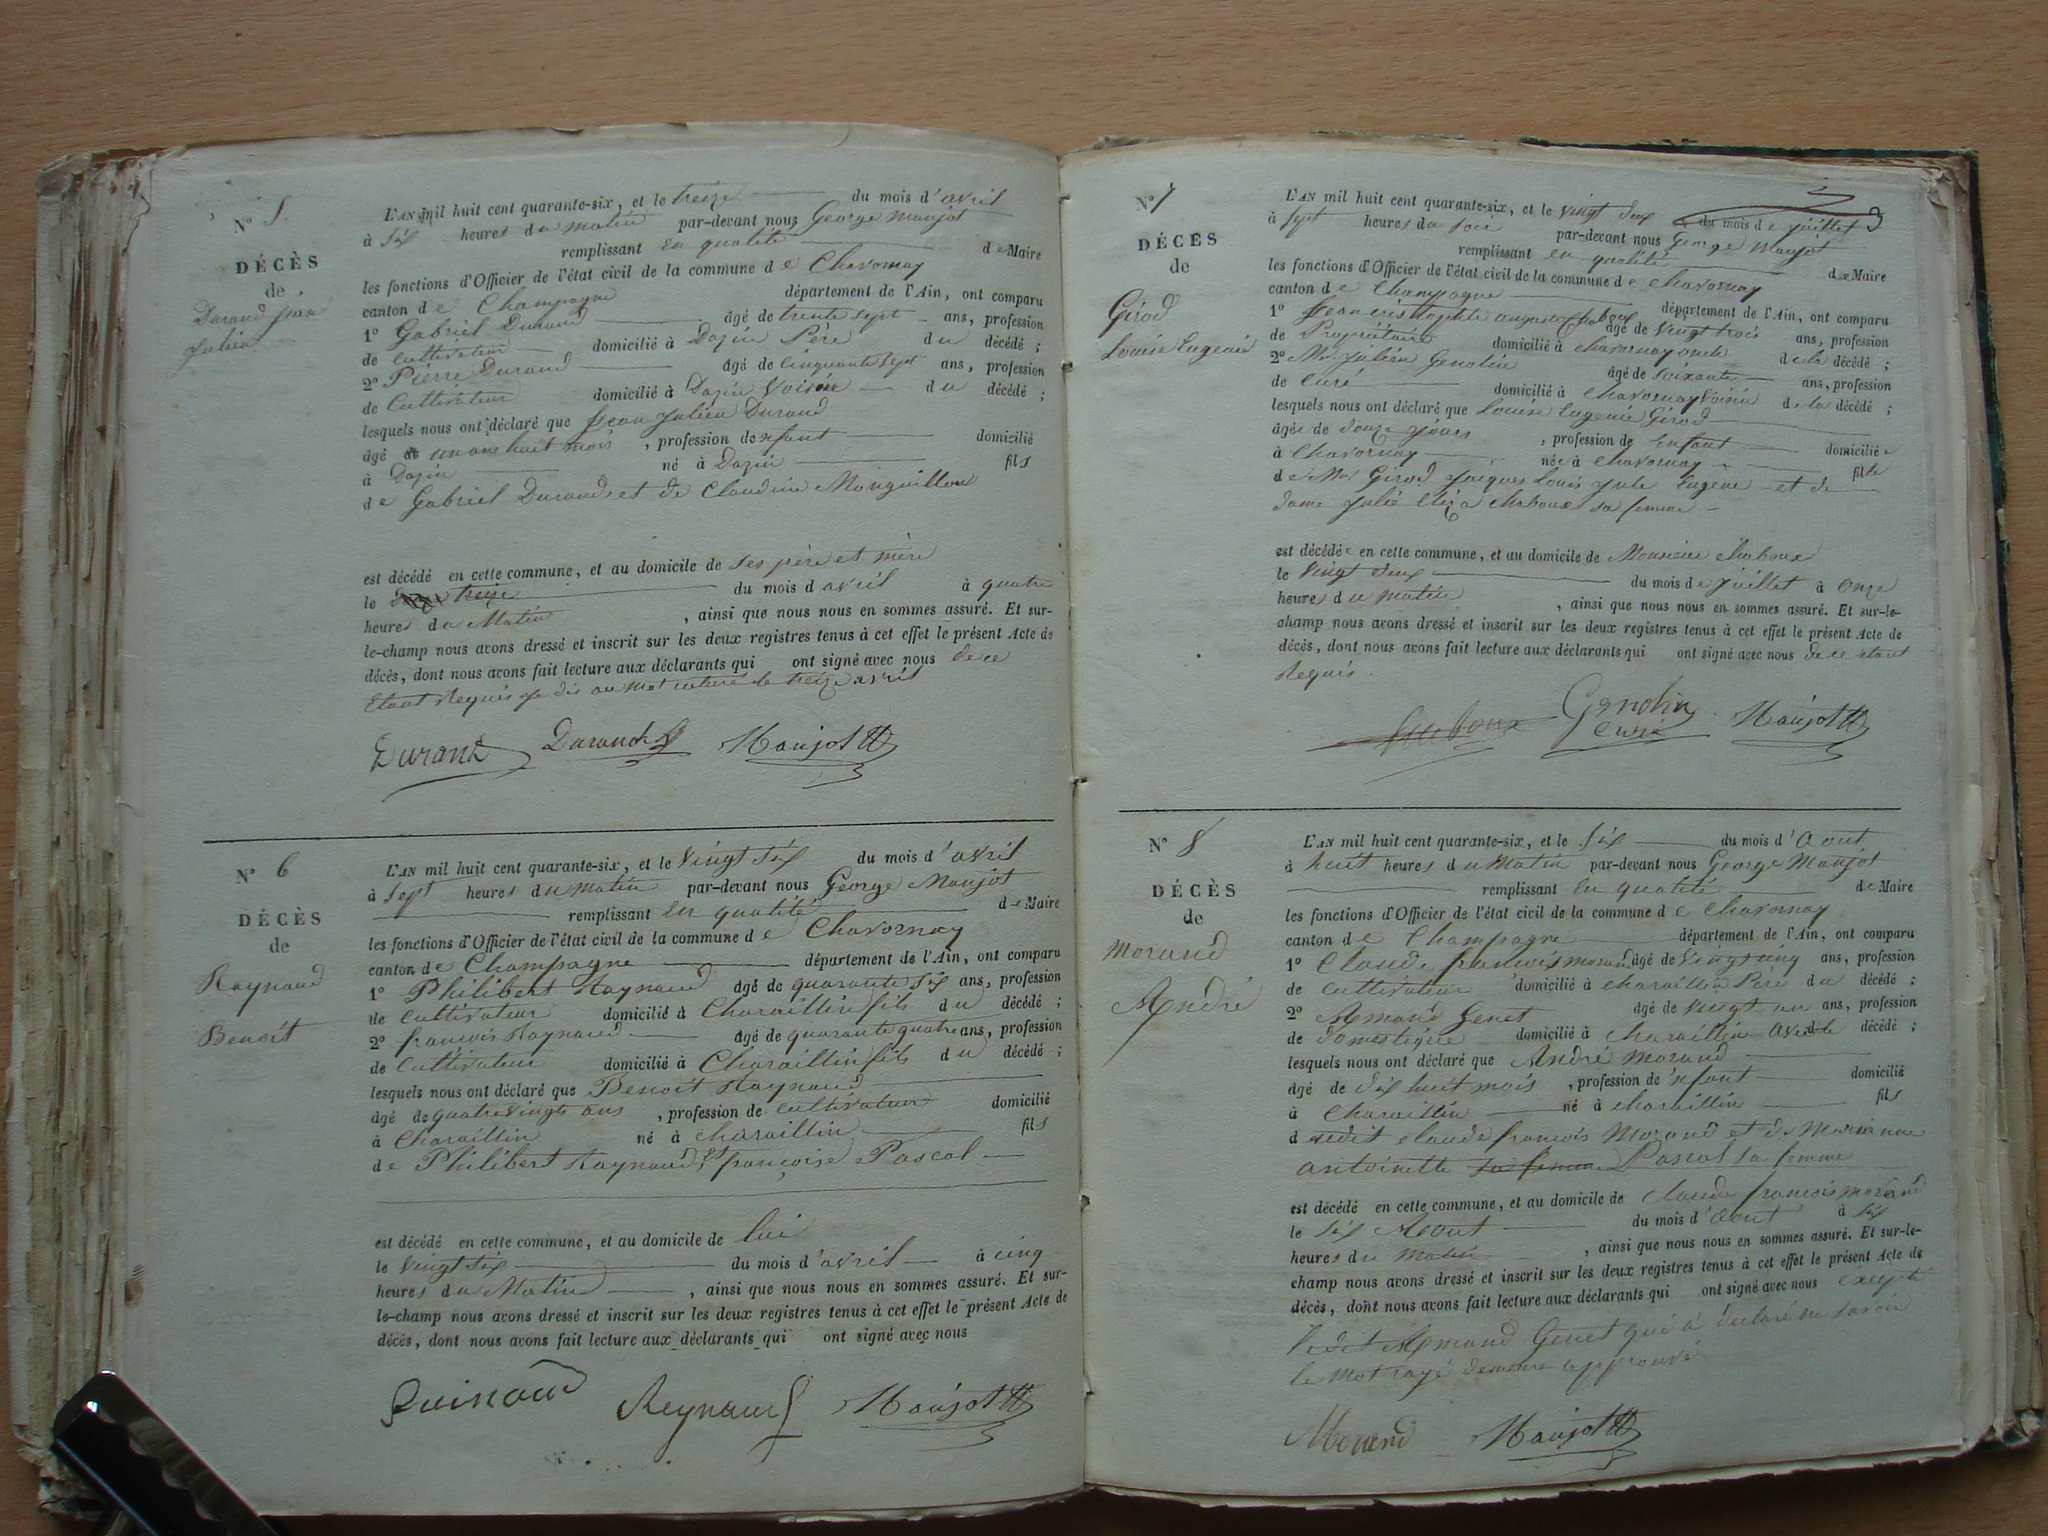 N° 5.
DÉCÈS
de
Durand Jean
Julien
L'AN mil huit cent quarante-six, et le treize du mois d'avril
à six heures du matin par-devant nous George Maujot
remplissant en qualité de Maire
les fonctions d'Officier de l'état civil de la commune de Chavornay
canton de Champagne département de l'Ain, ont comparu
1° Gabriel Durand âgé de trente sept ans, profession
de cultivateur domicilié à Dazin Père du décédé ;
2° Pierre Durand âgé de cinquante sept ans, profession
de Cultivateur domicilié à Dazin Voisin du décédé ;
lesquels nous ont déclaré que Jean Julien Durand
âgé de un ans huit mois, profession denfant domicilié
à Dazin né à Dazin fils
de Gabriel Durand et de Claudine
est décédé en cette commune, et au domicile de ses père et mère
le treize du mois d avril à quatre
heures du Matin, ainsi que nous nous en sommes assuré. Et sur-
le-champ nous avons dressé et inscrit sur les deux registres tenus à cet effet le présent Acte de
décès, dont nous avons fait lecture aux déclarants qui ont signé avec nous de ce
Etant Requis treize avril
Durand Durand Maujot
N° 6
DÉCÈS
de
Raynaud
Benoit
L'AN mil huit cent quarante-six, et le vingt six du mois d'avril
à sept heures du matin par-devant nous George Maujot
remplissant en qualité de Maire
les fonctions d'Officier de l'état civil de la commune de Chavornay
canton de Champagne département de l'Ain, ont comparu
1° Philibert Raynaud âgé de quarante six ans, profession
de Cultivateur domicilié à Charaillin fils du décédé ;
2° françois Raynaud âgé de quarante quatre ans, profession
de Cultivateur domicilié à Charaillin fils du décédé ;
lesquels nous ont déclaré que Benoit Raynaud
âgé de quatre vingts ans, profession de cultivateur domicilié
à Charaillin né à charaillin fils
de Philibert Raynaud et françoise Pascal
est décédé en cette commune, et au domicile de lui
le vingt six du mois d'avril à cinq
heures du Matin, ainsi que nous nous en sommes assuré. Et sur-
le-champ nous avons dressé et inscrit sur les deux registres tenus à cet effet le présent Acte de
décès, dont nous avons fait lecture aux déclarants qui ont signé avec nous
Reynaud Maujot
N° 7
DÉCÈS
de
Girod
Louise Eugenie
L'AN mil huit cent quarante-six, et le vingt deux du mois de juillet
à sept heures du soir par-devant nous George Maujot
remplissant en qualité de Maire
les fonctions d'Officier de l'état civil de la commune de chavornay
canton de Champagne département de l'Ain, ont comparu
1° auguste Chaboux âgé de vingt trois ans, profession
de Propriétaire domicilié à chavornay oncle de la décédé ;
2° Mr. Julien Genolin âgé de soixante ans, profession
de Curé domicilié à Chavornay Voisin de la décédé ;
lesquels nous ont déclaré que Louise Eugenie Girod
âgée de douze jours, profession de Enfant domiciliée
à Chavornay née à Chavornay fille
de Mr Girod Jacques Louis Jule Eugène et de
dame Julie Eliza chaboux sa femme
est décédée en cette commune, et au domicile de Monsieur Chaboux
le vingt deux du mois de juillet à onze
heures du matin, ainsi que nous nous en sommes assuré. Et sur-le-
champ nous avons dressé et inscrit sur les deux registres tenus à cet effet le présent Acte de
décès, dont nous avons fait lecture aux déclarants qui ont signé avec nous de ce etant
Requis.
Chaboux Genolin Maujot
curé
N° 8
DÉCÈS
de
Morand
André
L'AN mil huit cent quarante-six, et le six du mois d'Aout
à huit heures du Matin par-devant nous George Maujot
remplissant en qualité de Maire
les fonctions d'Officier de l'état civil de la commune de Chavornay
canton de Champagne département de l'Ain, ont comparu
1° Claude francois morand âgé de vingt cinq ans, profession
de cultivateur domicilié à charaillin Père du décédé ;
2° Armand Genet âgé de vingt un ans, profession
de domestique domicilié à charaillin décédé ;
lesquels nous ont déclaré que André Morand
âgé de dix huit mois, profession de'nfant domicilié
à Charaillin né à charaillin fils
dudit claude françois Morand et de Marianne
antoinette sa femme Pascal sa femme
est décédé en cette commune, et au domicile de Claude francois morand
le six Aout du mois d'aout à six
heures du matin, ainsi que nous nous en sommes assuré. Et sur-le-
champ nous avons dressé et inscrit sur les deux registres tenus à cet effet le présent Acte de
décès, dont nous avons fait lecture aux déclarants qui ont signé avec nous excepté
ledit Armand Genet qui à déclaré ne savoir
le mot rayé demeure approuvé
Morand Maujot